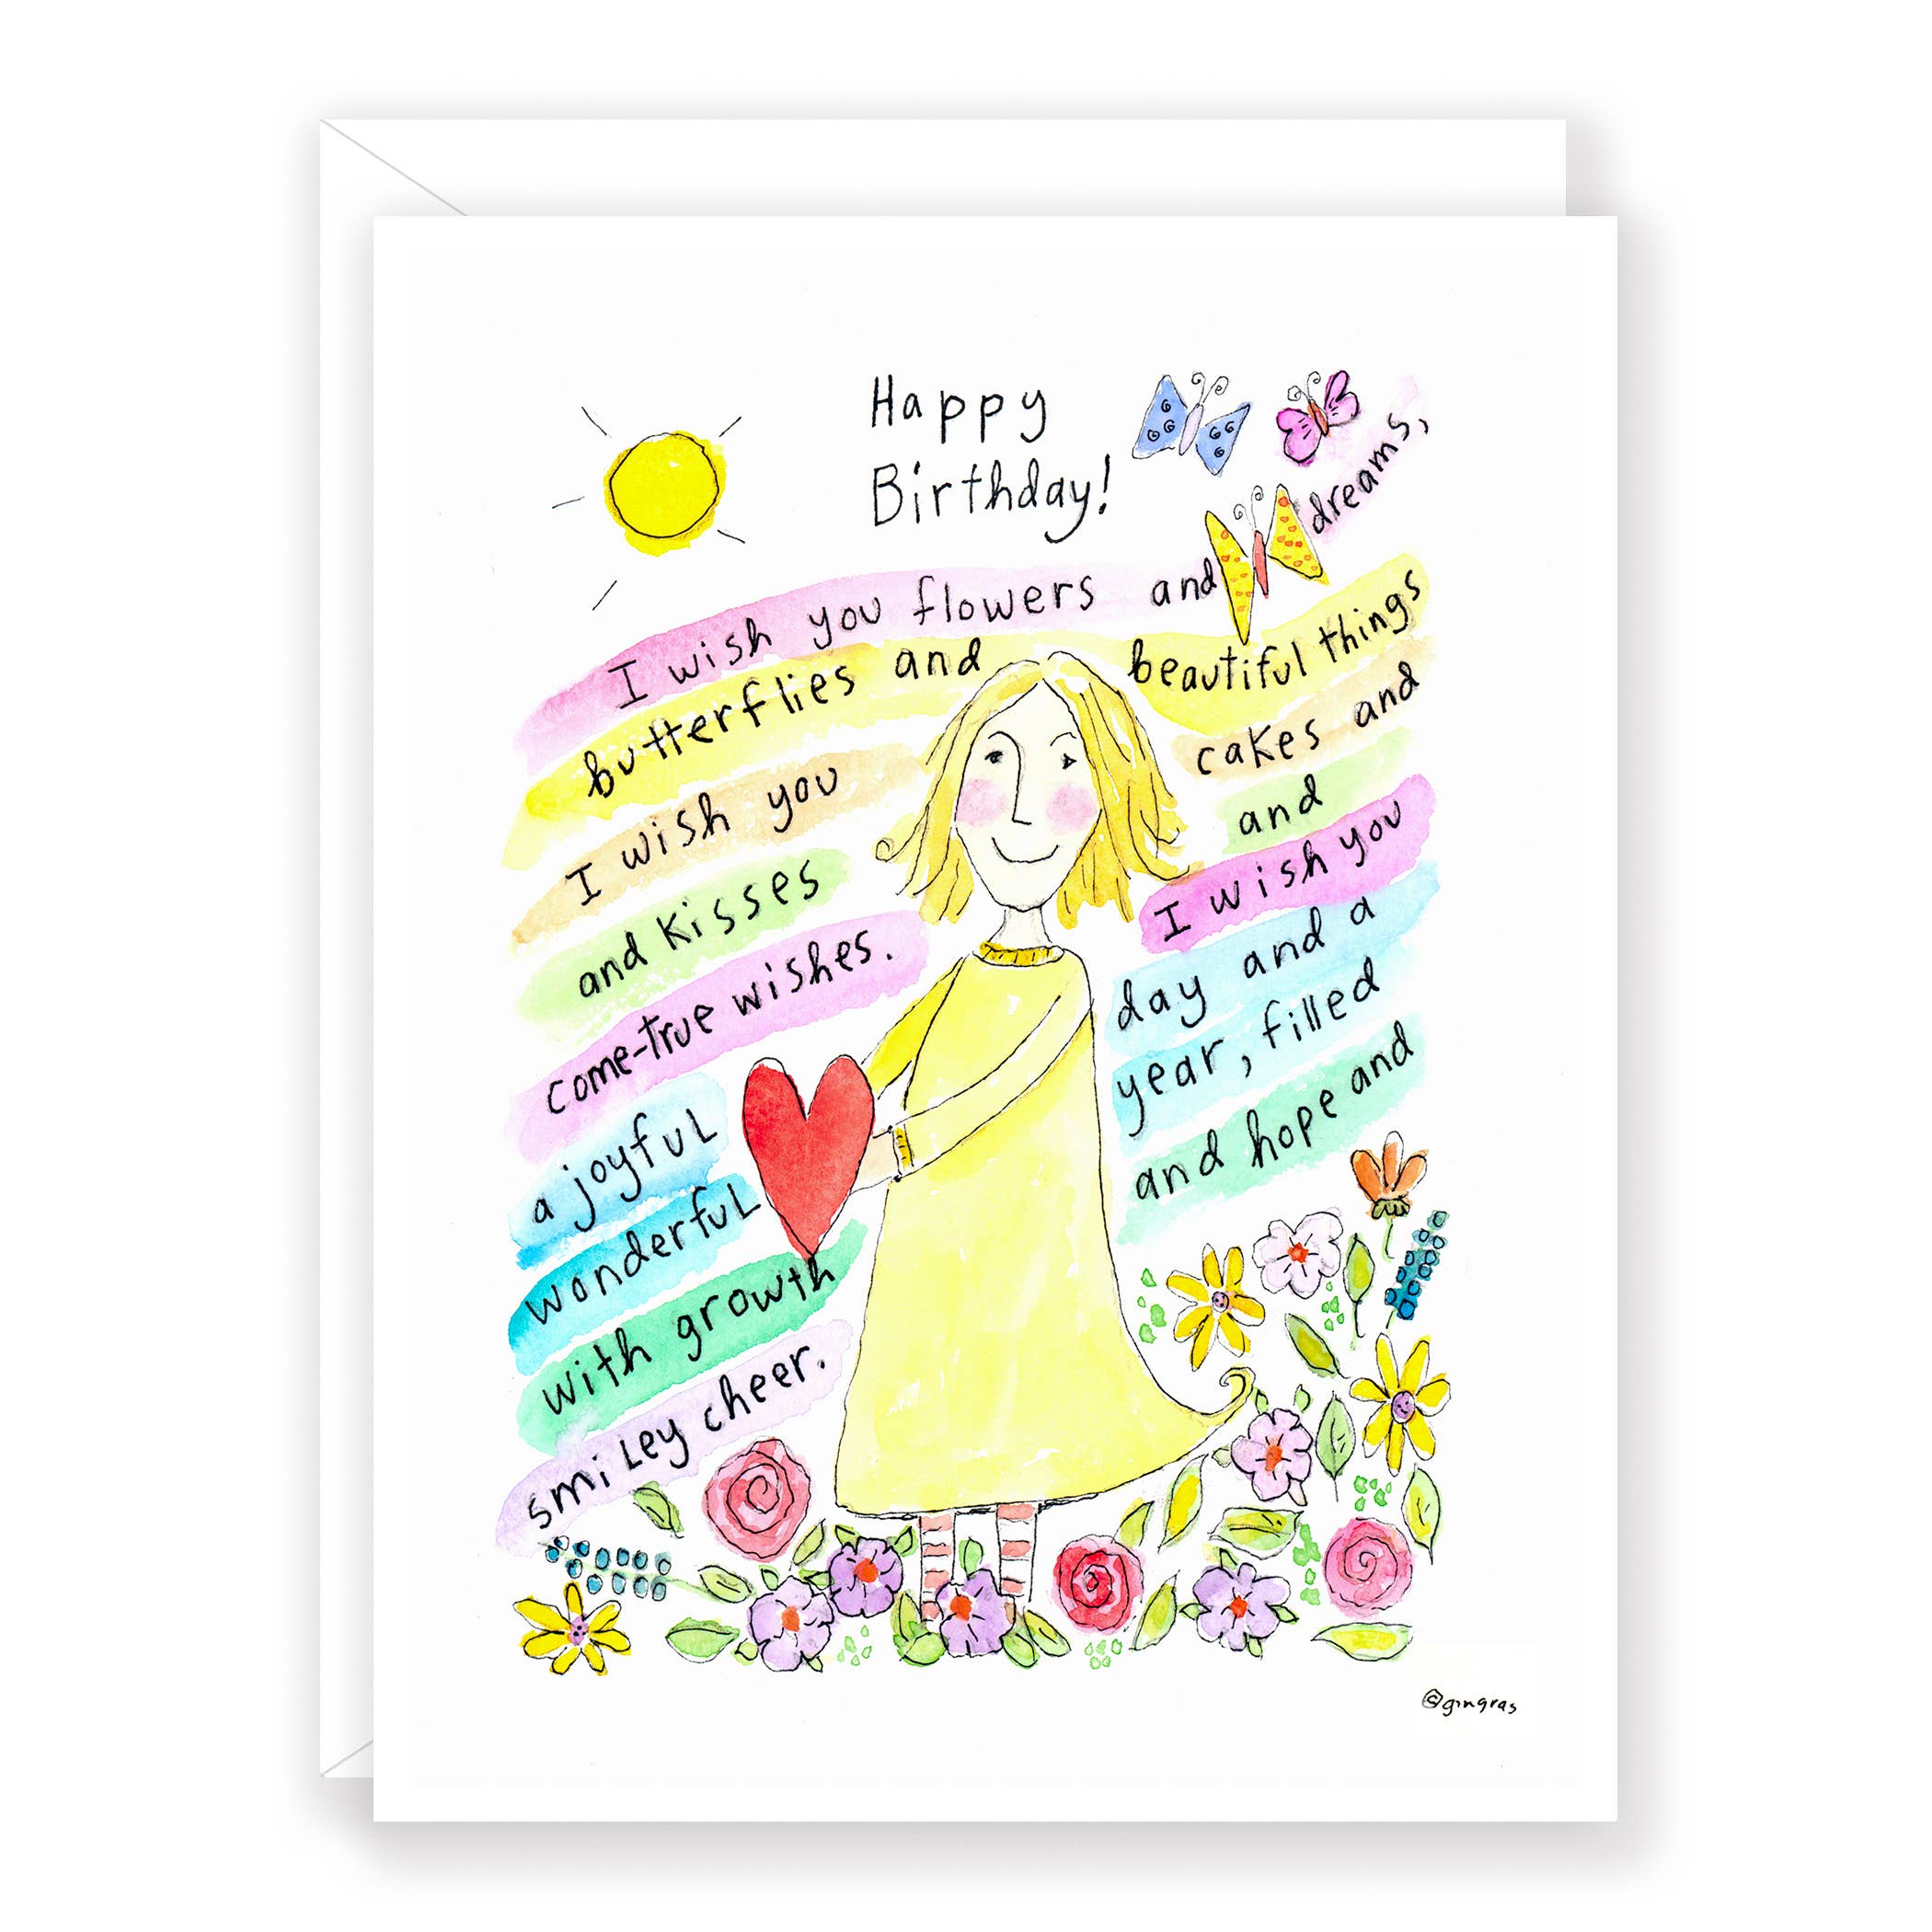 Happy
Birthday!
I wish you flowers and dreams,
butterflies and beautiful things
I wish you cakes and
and kisses and
come-true wishes. I wish you
a joyful day and a
wonderful year, filled
with growth and hope and
smiley cheer.
©gingras